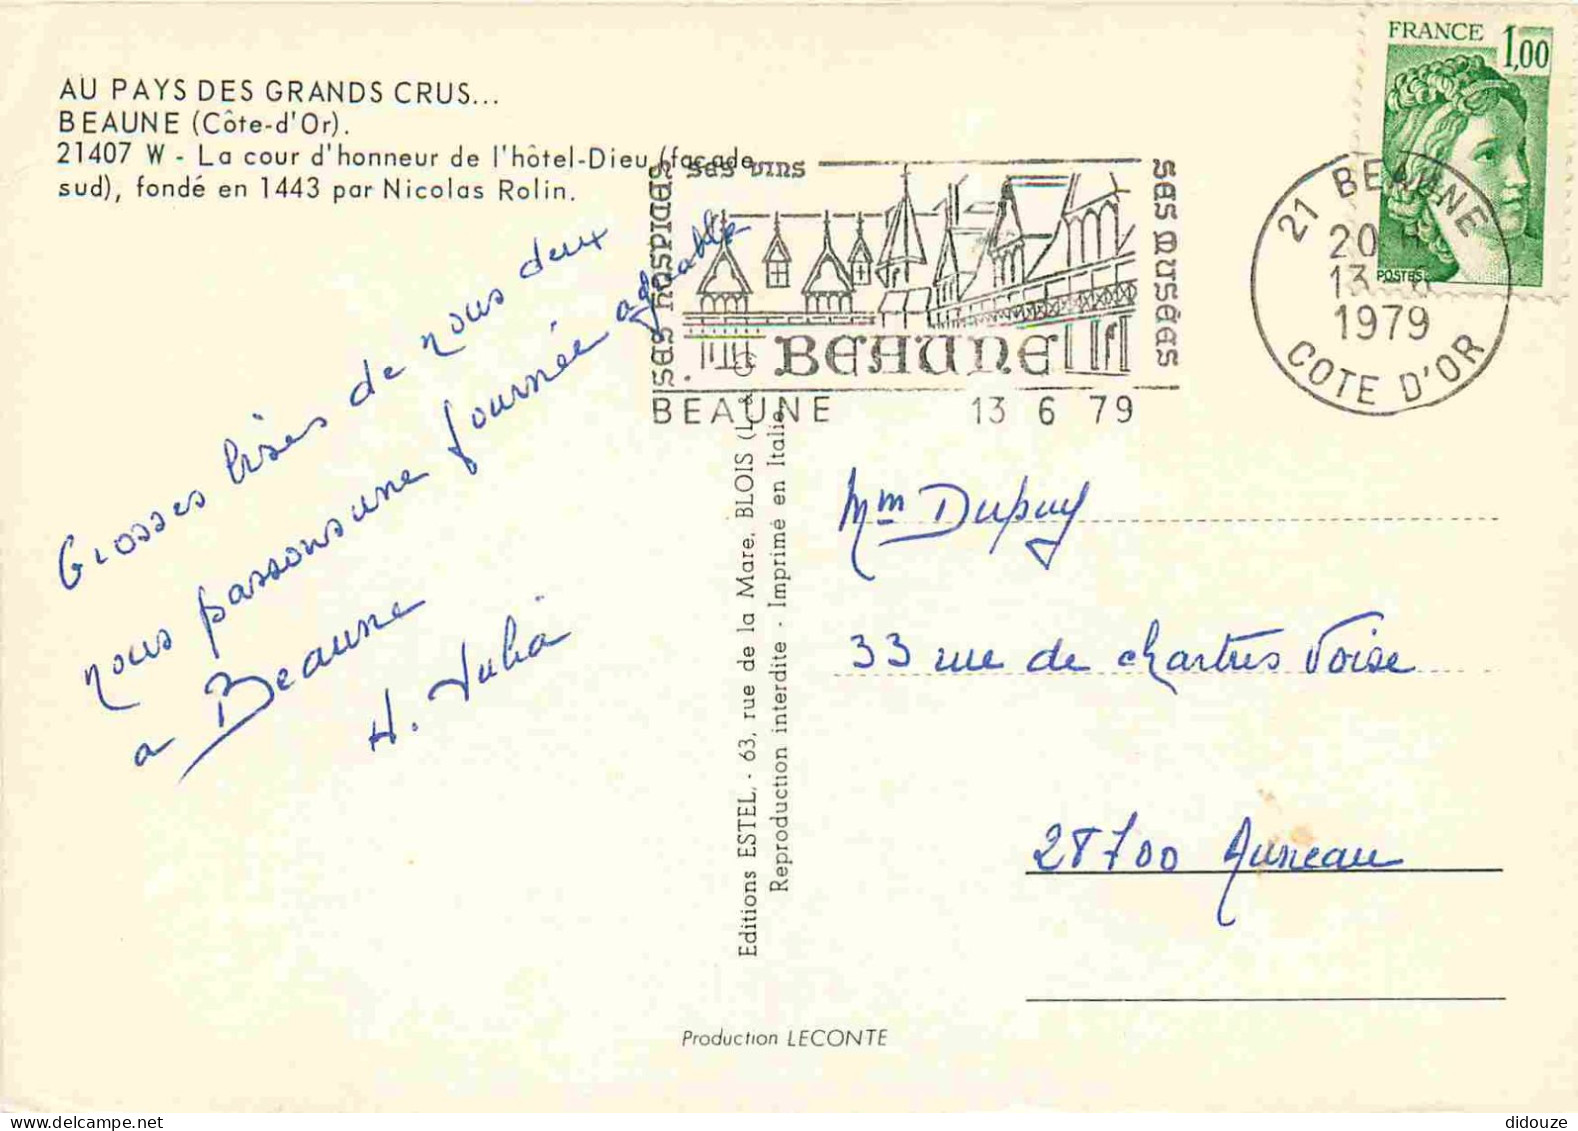 AU PAYS DES GRANDS CRUS...
BEAUNE (Côte-d'Or).
21407 W - La cour d'honneur de l'hôtel-Dieu (façade
sud), fondé en 1443 par Nicolas Rolin.
Grosses bises de nous deux
nous passons une journée agréable
a Beaune
H. Julia
SES HOSPICES
SES VINS
SES MUSÉES
BEAUNE
BEAUNE 13 6 79
21 BEAUNE
20 H
13 - 6
1979
COTE D'OR
FRANCE 1,00
POSTES
Editions ESTEL, - 63, rue de la Mare, BLOIS (L. & C.)
Reproduction interdite - Imprimé en Italie
Mm Dupuy
33 rue de chartres Voise
28700 Auneau
Production LECONTE
didouze